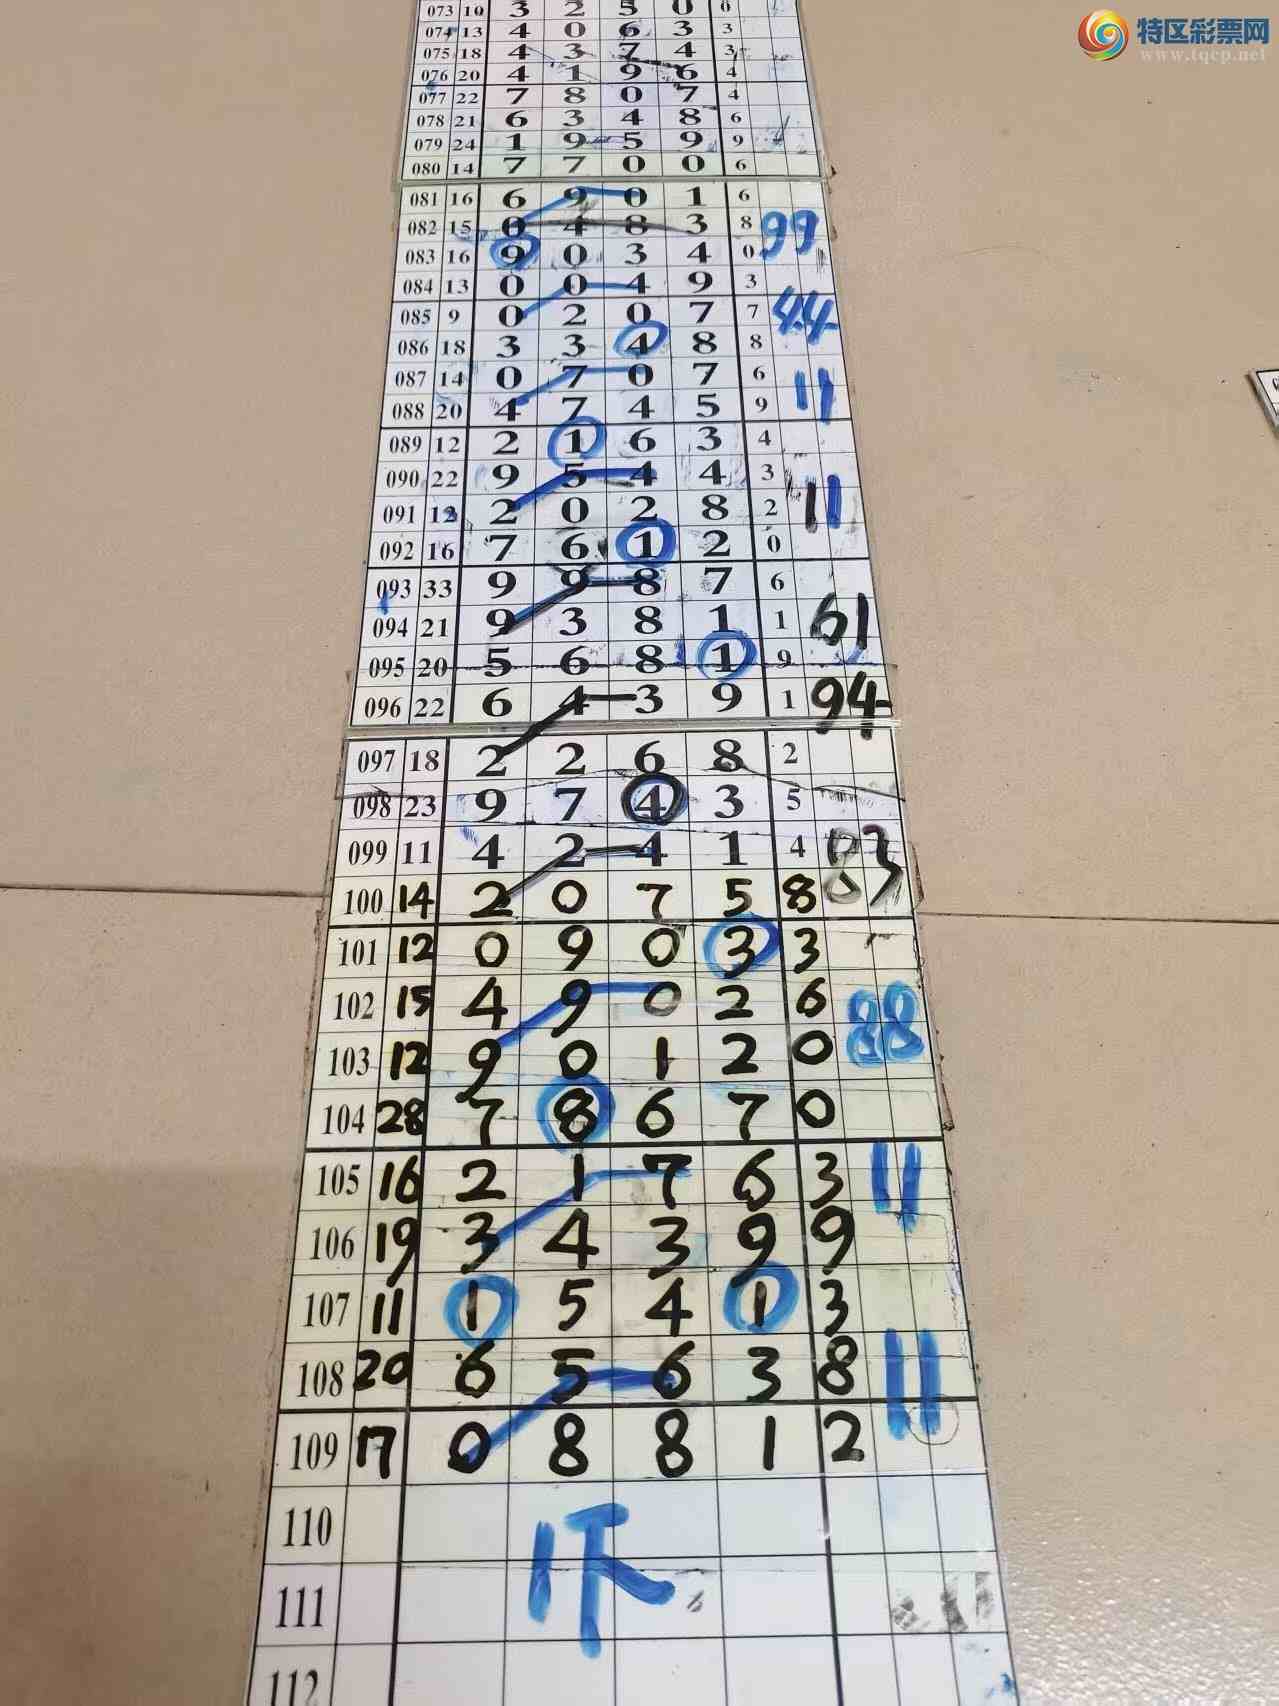 特区彩票网
www.tqcp.net
073 10 3 2 5 0 8
074 13 4 0 6 3 3
075 18 4 3 7 4 3
076 20 4 1 9 6 4
077 22 7 8 0 7 4
078 21 6 3 4 8 6
079 24 1 9 5 9 9
080 14 7 7 0 0 6
081 16 6 9 0 1 6
082 15 0 4 8 3 8 99
083 16 9 0 3 4 0
084 13 0 0 4 9 3
085 9 0 2 0 7 7 44
086 18 3 3 4 8 8
087 14 0 7 0 7 6
088 20 4 7 4 5 9 11
089 12 2 1 6 3 4
090 22 9 5 4 4 3
091 12 2 0 2 8 2 11
092 16 7 6 1 2 0
093 33 9 9 8 7 6
094 21 9 3 8 1 1 61
095 20 5 6 8 1 9
096 22 6 4 3 9 1 94
097 18 2 2 6 8 2
098 23 9 7 4 3 5
099 11 4 2 4 1 4 83
100 14 2 0 7 5 8
101 12 0 9 0 3 3
102 15 4 9 0 2 6 88
103 12 9 0 1 2 0
104 28 7 8 6 7 0
105 16 2 1 7 6 3 11
106 19 3 4 3 9 9
107 11 1 5 4 1 3
108 20 6 5 6 3 8 11
109 17 0 8 8 1 2
110
1下
111
112